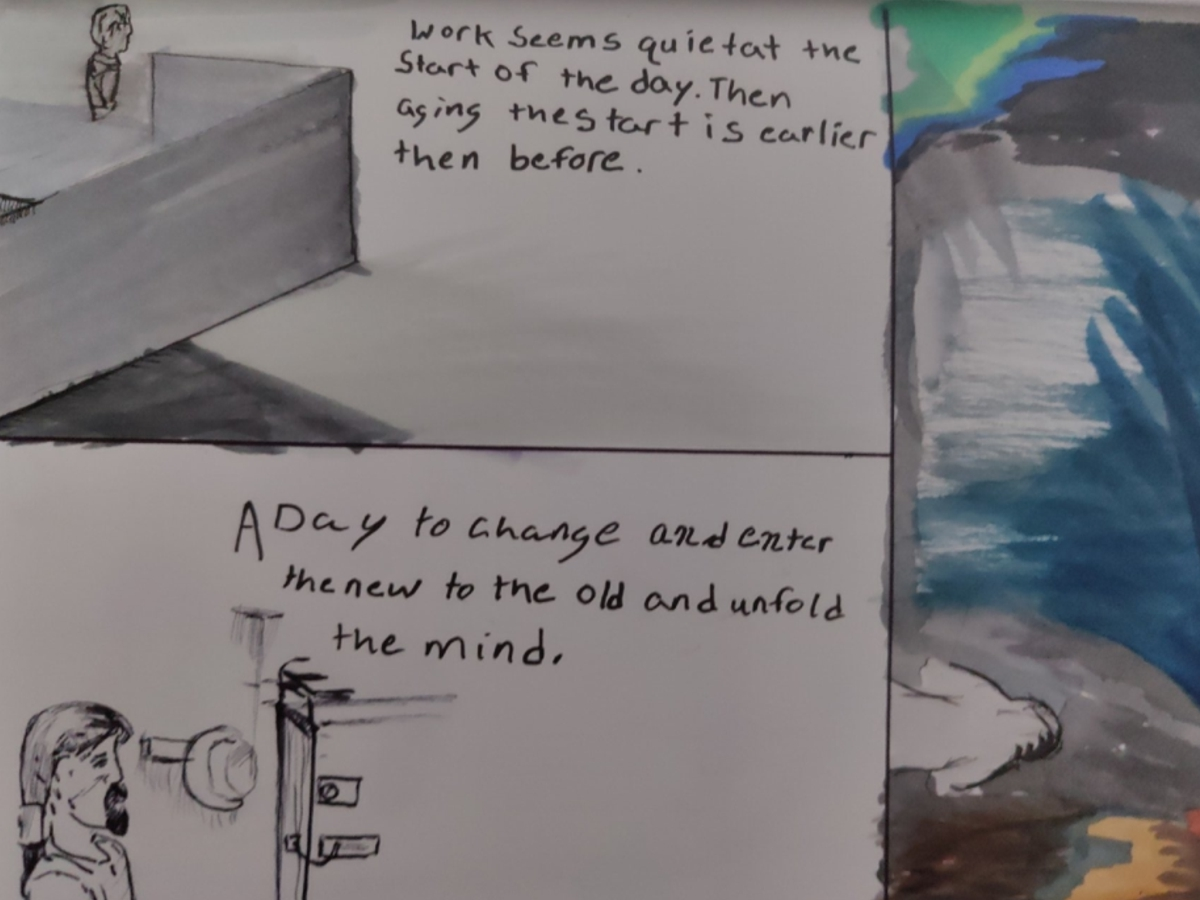 Work Seems quietat the
Start of the day. Then
aging thestart is earlier
then before.
A Day to change and enter
the new to the old and unfold
the mind.